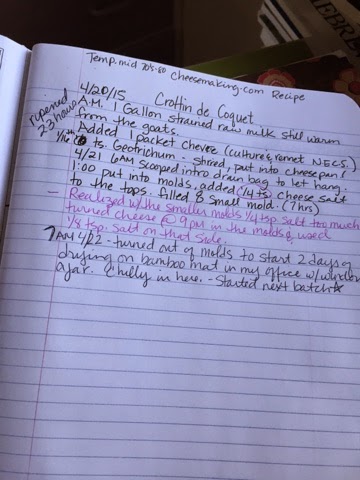 Temp. mid 70's-80 cheesemaking.com Recipe
4/20/15 Crottin de Coquet
ripened 23 hours
A.M. 1 Gallon strained raw milk still warm
from the goats.
Added 1 packet Chevre (culture & rennet N.E.C.S.)
1/16th ts. Geotrichum - stirred, put into cheese pan
4/21 6AM scooped intro drain bag to let hang.
1:00 put into molds, added 1/4 ts cheese salt
to the tops. filled 8 small mold. (7 hrs)
- Realized w/the smaller molds 1/4 tsp. salt too much
turned cheese @ 9PM in the molds & used
1/8 tsp. salt on that side.
7AM 4/22 - turned out of molds to start 2 days of
drying on bamboo mat in my office w/window
ajar. Chilly in here. - Started next batch